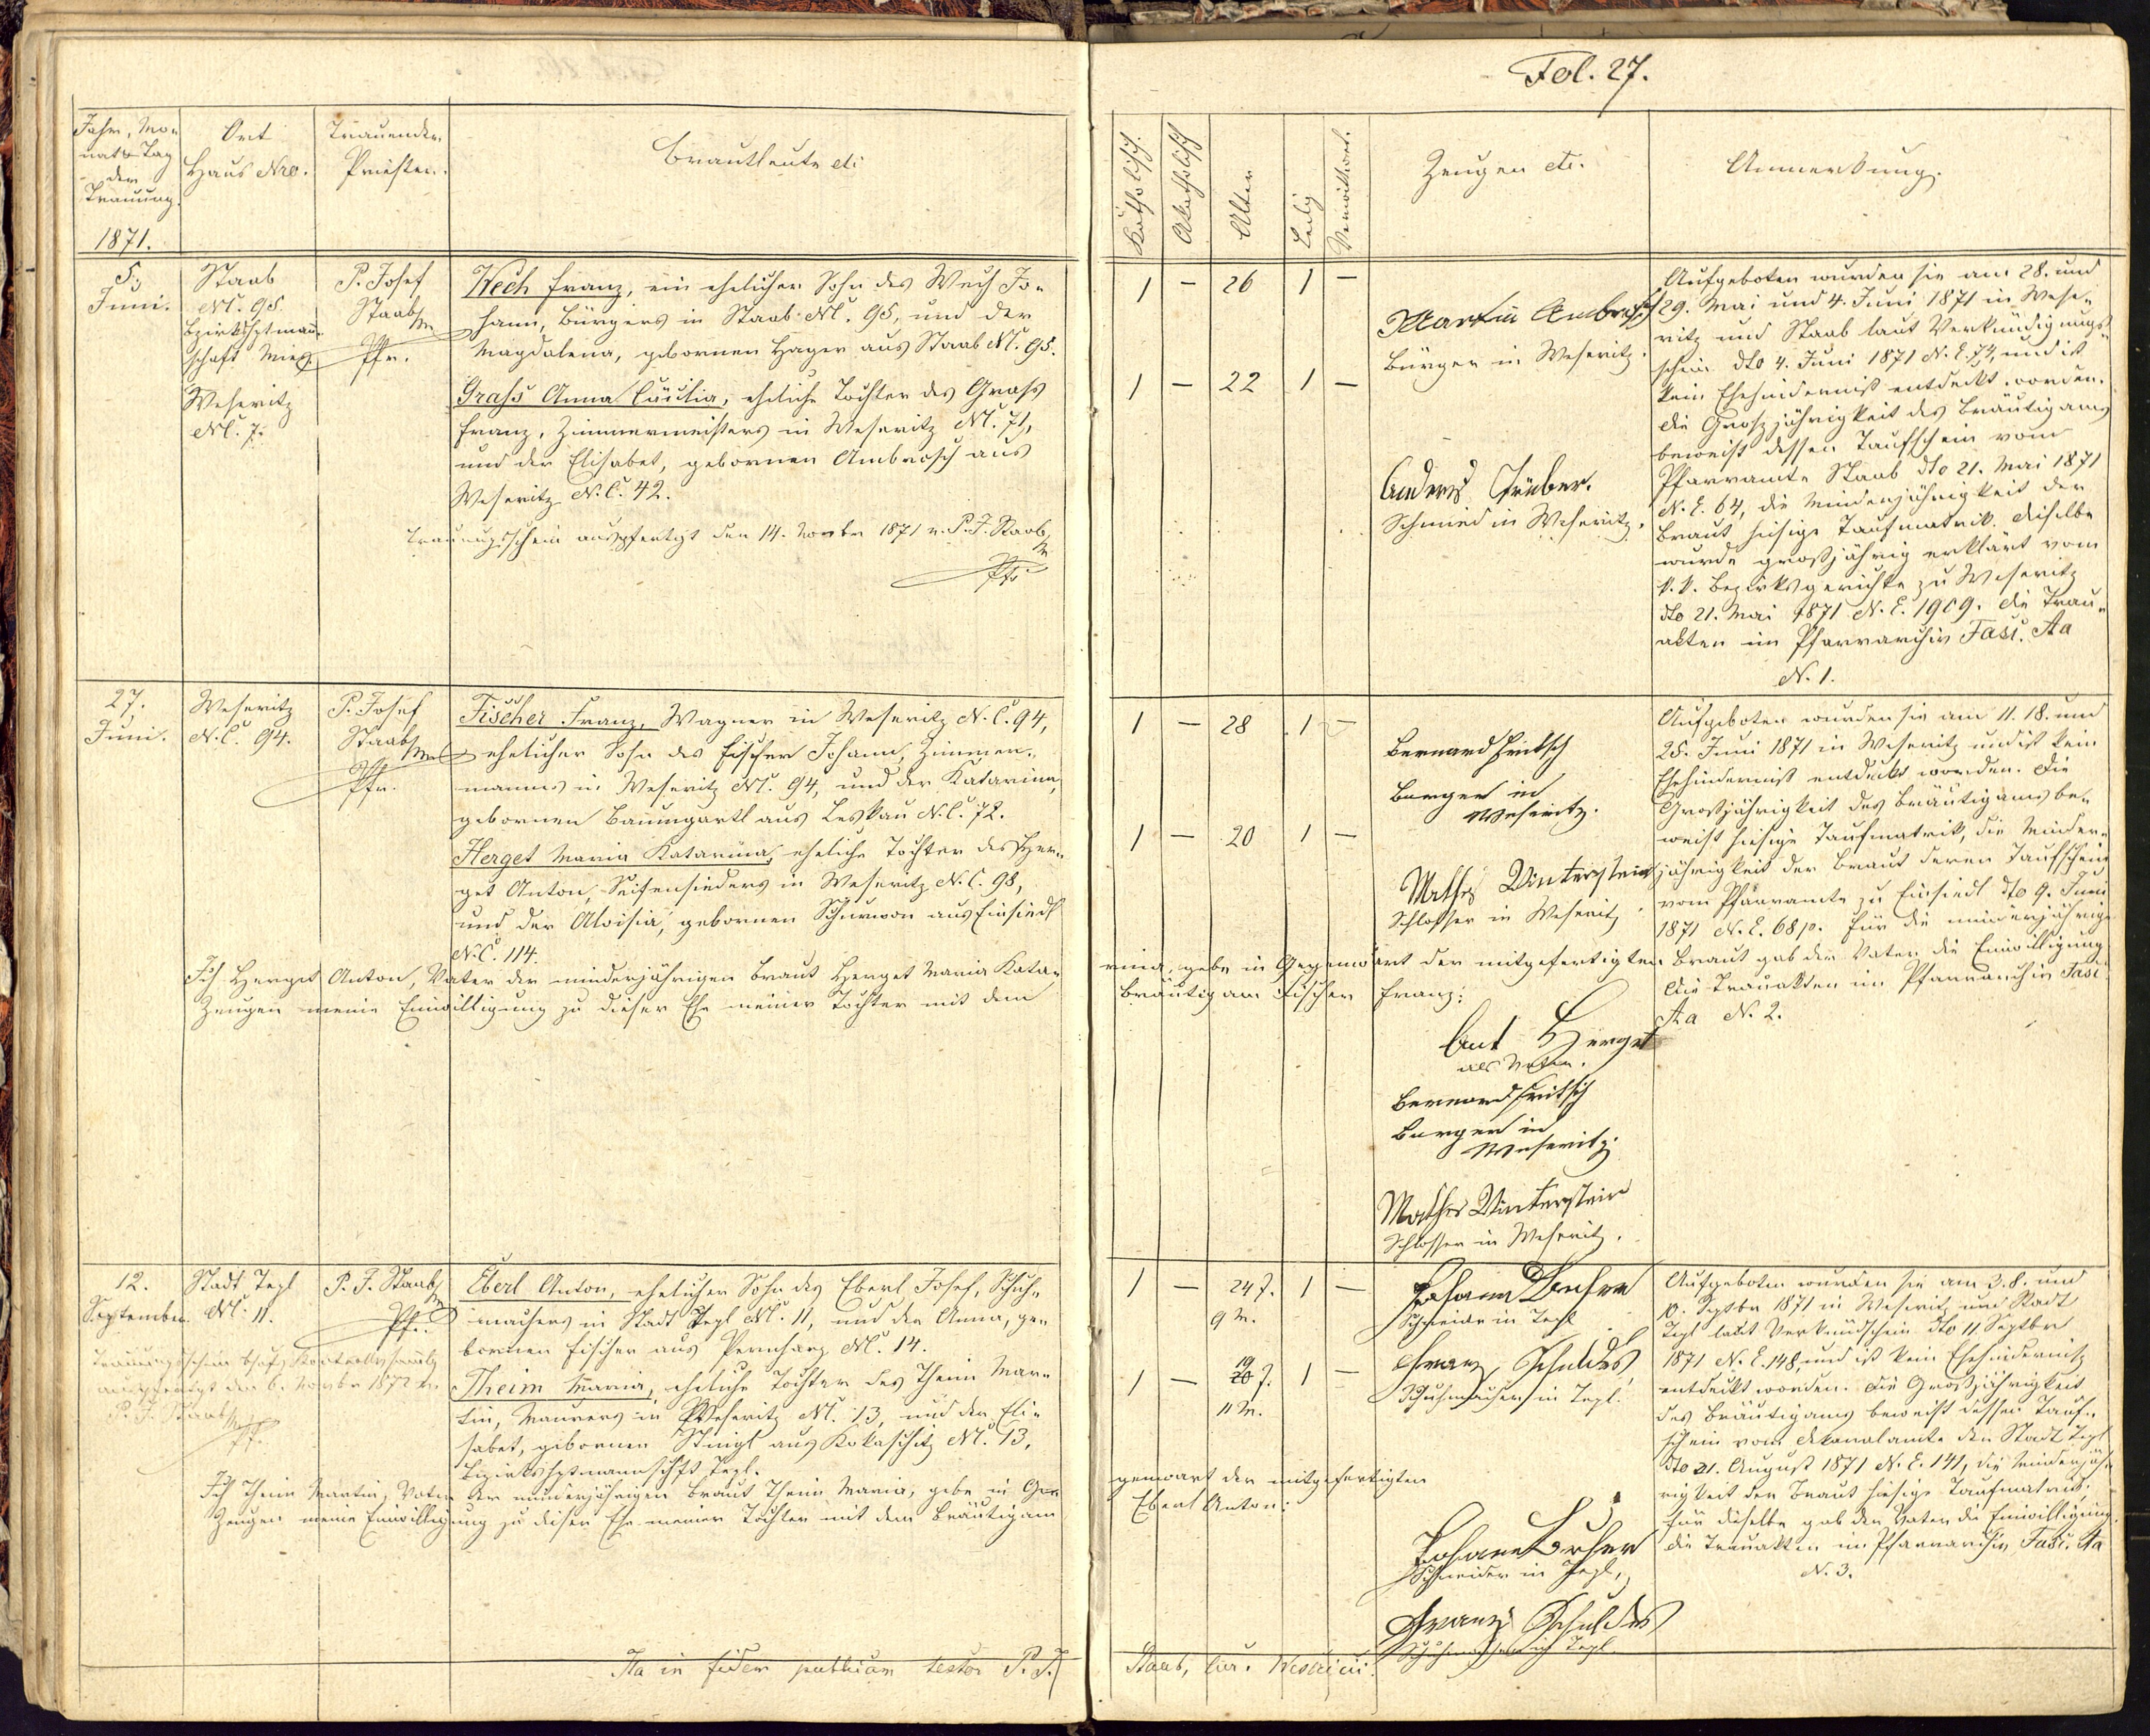 Fol. 27.
Jahr, Mo-
nat & Tag
der
Trauung.
1871.
Ort
Haus Nro.
Trauender
Priester.
Brautleute etc
Katholisch.
Akatholisch
Alter
Ledig
Verwittwet.
Zeugen etc.
Anmerkung.
5.
Juni.
Staab
NC. 95.
Bzirkshptmann-
schaft Mies.
Weseritz
NC. 7.
P. Josef
Staab
Pfr.
Wech Franz, ein ehelicher Sohn des Wech Jo-
hann, Bürgers in Staab NC. 95, und der
Magdalena, gebornen Hager aus Staab NC. 95.
Grafs Anna Cäcilia, eheliche Tochter des Grafs
Franz, Zimmermeisters in Weseritz NC. 71,
und der Elisabet, gebornen Ambrosch aus
Weseritz N.C. 42.
Trauungsschein ausgefertigt den 14. Novbr 1871 v. P. J. Staab
Pfr
1 – 26 1 –
1 – 22 1 –
Martin Ambrosch
Bürger in Weseritz.
Anders
Schmied in Weseritz.
Aufgeboten wurden sie am 28. und
29. Mai und 4. Juni 1871 in Wese-
ritz und Staab laut Verkündigungs-
schein dto 4. Juni 1871 N.E. 74, und ist
kein Ehehinderniß entdeckt worden.
Die Großjährigkeit des Bräutigams
beweist dessen Taufschein vom
Pfarramte Staab dto 21. Mai 1871
N.E. 64, die Minderjährigkeit der
Braut hiesige Taufmatrik. Dieselbe
wurde großjährig erklärt vom
k.k. Bezirksgerichte zu Weseritz
dto 21. Mai 1871 N.E. 1909. Die Trau-
akten im Pfarrarchiv Fasc. Aa
N. 1.
27.
Juni.
Weseritz
N.C. 94.
P. Josef
Staab
Pfr.
Fischer Franz, Wagner in Weseritz N.C. 94,
ehelicher Sohn des Fischer Johann, Zimmer-
mannes in Weseritz NC. 94, und der Katarina,
gebornen Baumgartl aus Leskau N.C. 72.
Herget Maria Katarina, eheliche Tochter des Her-
get Anton, Seifensieders in Weseritz N.C. 98,
und der Aloisia, gebornen aus Einsiedl
N.C. 114.
Ich Herget Anton, Vater der minderjährigen Braut Herget Maria Kata-
rina, gebe in Gegenwart der mitgefertigten
Zeugen meine Einwilligung zu dieser Ehe meiner Tochter mit dem
Bräutigam Fischer Franz:
1 – 28 1 –
1 – 20 1 –
Bernard Fritsch
Bürger in
Weseritz.
Mathes Winterstein
Schlosser in Weseritz
Ant Herget
als Vater.
Bernard Fritsch
Bürger in
Weseritz.
Mathes Winterstein
Schlosser in Weseritz.
Aufgeboten wurden sie am 11. 18. und
25. Juni 1871 in Weseritz und ist kein
Ehehinderniß entdeckt worden. Die
Großjährigkeit des Bräutigams be-
weist hiesige Taufmatrik, die Minder-
jährigkeit der Braut deren Taufschein
vom Pfarramte zu Einsiedl dto 9. Juni
1871 N.E. 68/p. Für die minderjährige
Braut gab der Vater die Einwilligung
Die Trauakten im Pfarrarchiv Fasc
Aa N. 2.
12.
September.
Stadt Tepl
NC. 11.
P. J. Staab
Pfr.
Trauungsschein behufs
ausgefertigt den 6. Novbr 1872 v.
P. J. Staab
Pfr.
Eberl Anton, ehelicher Sohn des Eberl Josef, Schuh-
machers in Stadt Tepl NC. 11, und der Anna, ge-
bornen Fischer aus Pernharz NC. 14.
Theim Maria, eheliche Tochter des Theim Mar-
tin, Maurers in Weseritz NC. 13, und der Eli-
sabet, gebornen Stingl aus Kokaschitz NC. 13,
Bezirkshptmannschaft Tepl.
Ich Theim Martin, Vater der minderjährigen Braut Theim Maria, gebe in Ge-
genwart der mitgefertigten
Zeugen meine Einwilligung zu dieser Ehe meiner Tochter mit dem Bräutigam
Eberl Anton:
1 – 24 J. 1 –
9 M.
1 – 19 J. 1 –
11 M.
Johann
Schneider in Tepl
Franz Schuldes
Schuhmacher in Tepl.
Johann
Schneider in Tepl,
Franz Schuldes
Schuhmacher in Tepl.
Aufgeboten wurden sie am 3. 8. und
10. Septbr 1871 in Weseritz und Stadt
Tepl laut Verkündschein dto 11 Septbr
1871 N.E. 148, und ist kein Ehehinderniß
entdeckt worden. Die Großjährigkeit
des Bräutigams beweist dessen Tauf-
schein vom Dekanalamte der Stadt Tepl
dto 21. August 1871 N.E. 141, die Minderjäh-
rigkeit der Braut hiesige Taufmatrik.
Für dieselbe gab der Vater die Einwilligung.
Die Trauakten im Pfarrarchiv Fasc. Aa
N. 3.
Ita in fidem publicam testor P. J. Staab, cur.